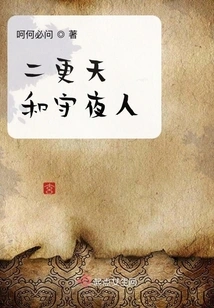 呵何必问 ◎ 著
二更天
和守夜人